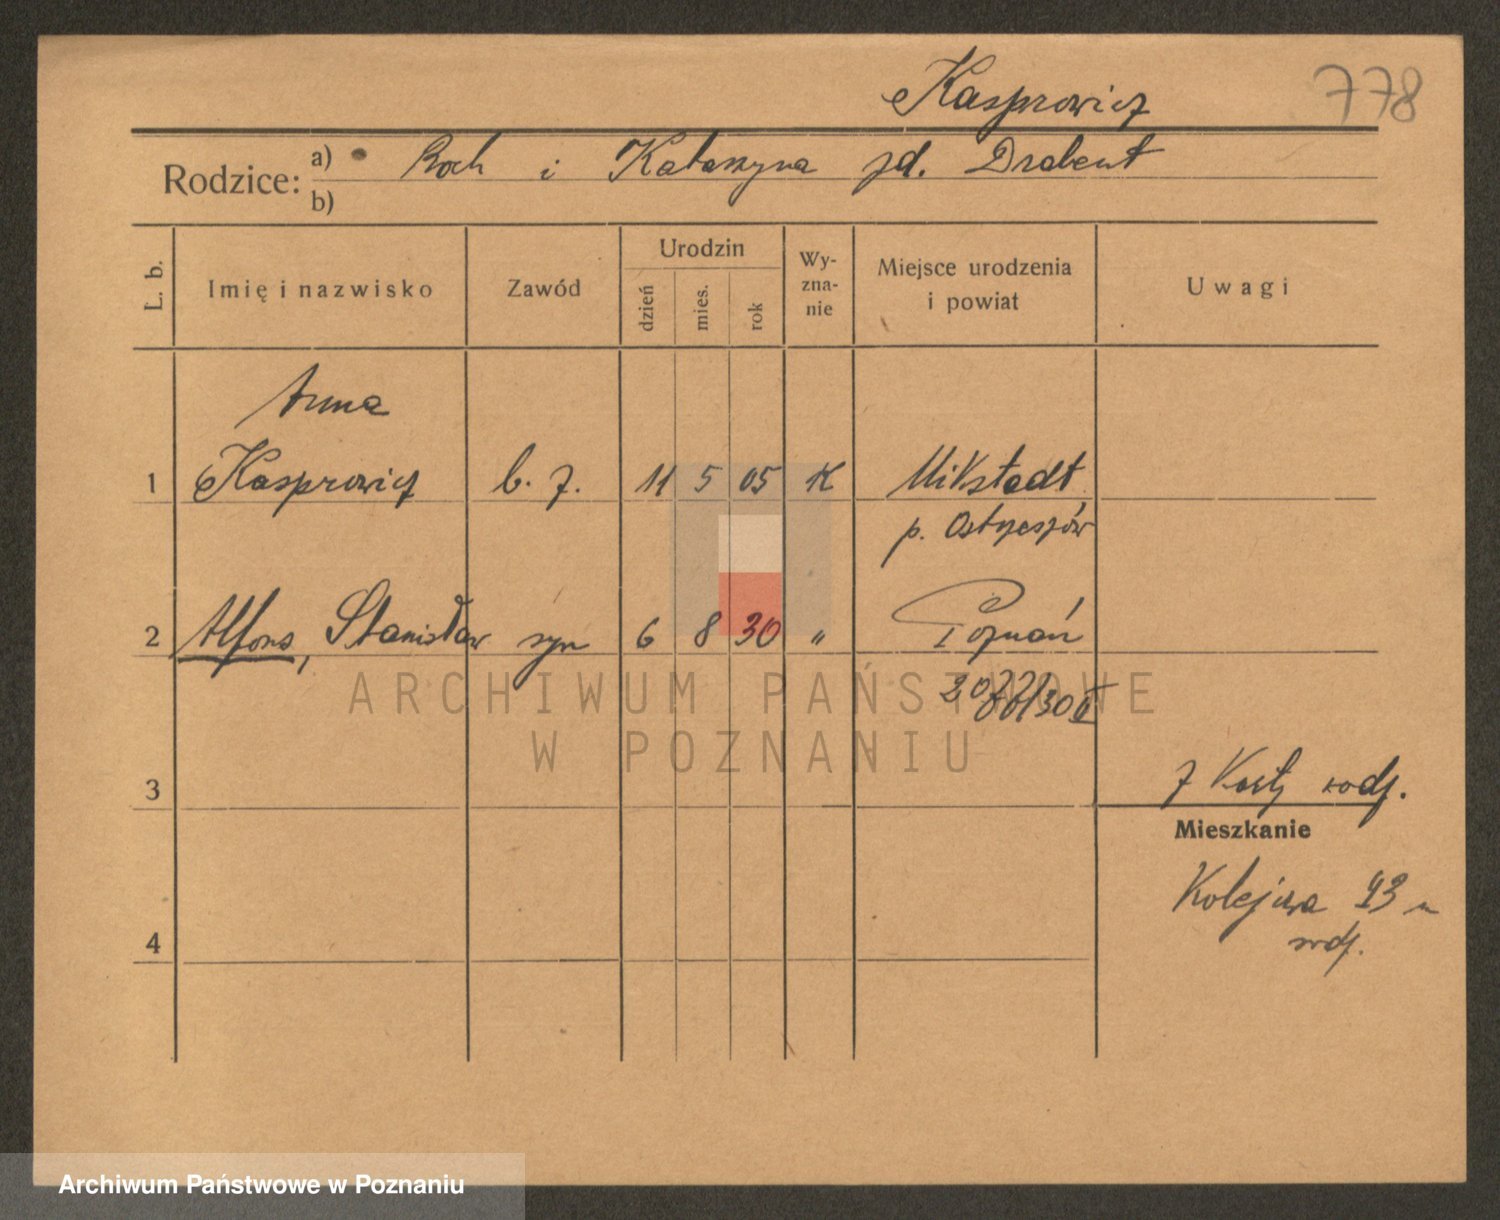 Kasprowicz 778
Rodzice: a) Roch i Katarzyna zd. Drabent
b)
L. b. Imię i nazwisko Zawód Urodzin dzień mies. rok Wy-zna-nie Miejsce urodzenia i powiat Uwagi
Anna
1 Kasprowicz b. z. 11 5 05 K Mikstadt
p. Ostrzeszów
2 Alfons, Stanisław syn 6 8 30 " Poznań
/30 II
ARCHIWUM PAŃSTWOWE
W POZNANIU
3 z Karty rodz.
Mieszkanie
Kolejowa
4 rodz.
Archiwum Państwowe w Poznaniu